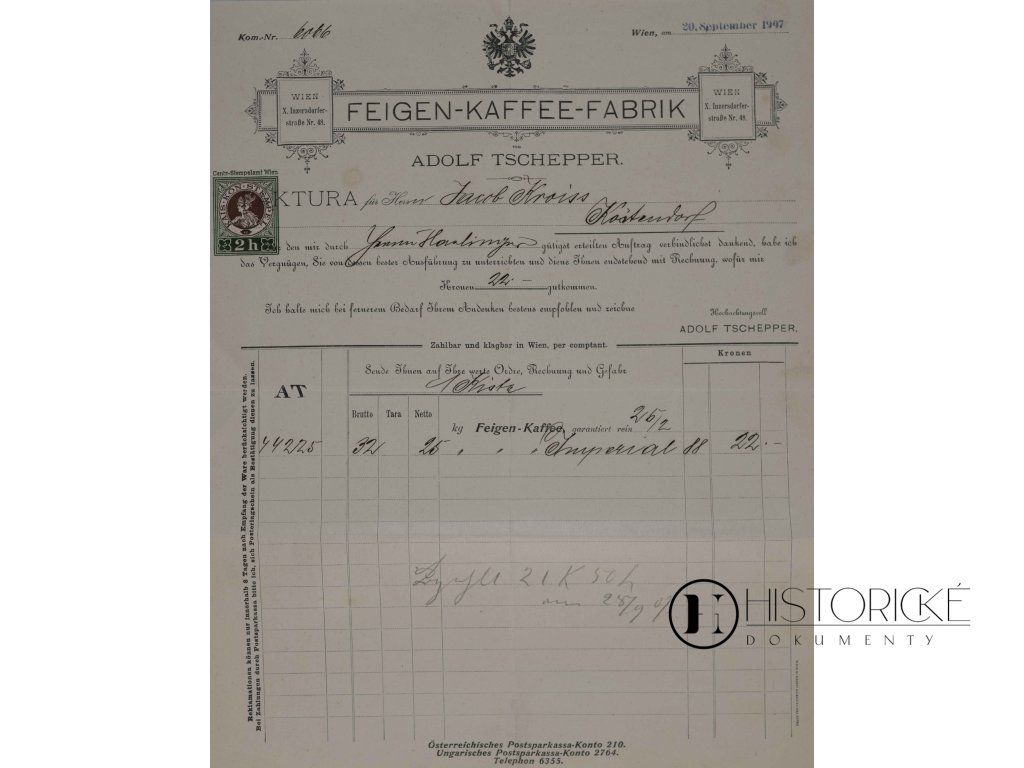 Kom.-Nr. 6066
Wien, am 20. September 1907
WIEN
X. Inzersdorfer-
straße Nr. 48.
FEIGEN-KAFFEE-FABRIK
WIEN
X. Inzersdorfer-
straße Nr. 48.
von
ADOLF TSCHEPPER.
Centr-Stempelamt Wien
2h
KTURA für Herrn Jacob Kroiss
Köstendorf
den mir durch Herrn Haslinger gütigst erteilten Auftrag verbindlichst dankend, habe ich
das Vergnügen, Sie von dessen bester Ausführung zu unterrichten und diene Ihnen endstehend mit Rechnung, wofür mir
Kronen 22.– gutkommen.
Ich halte mich bei fernerem Bedarf Ihrem Andenken bestens empfohlen und zeichne
Hochachtungsvoll
ADOLF TSCHEPPER.
Zahlbar und klagbar in Wien, per comptant.
Kronen
Sende Ihnen auf Ihre werte Ordre, Rechnung und Gefahr
1 Kiste
AT
Brutto Tara Netto
kg Feigen-Kaffee, garantiert rein 25/2
44225 32 25 " " " Imperial 88 22.–
21 K 50 h
am 28/9 07
Reklamationen können nur innerhalb 8 Tagen nach Empfang der Ware berücksichtigt werden.
Bei Zahlungen durch Postsparkassa bitte ich, sich Posteringschein als Bestätigung dienen zu lassen.
HISTORICKÉ
DOKUMENTY
Österreichisches Postsparkassa-Konto 210.
Ungarisches Postsparkassa-Konto 2764.
Telephon 6355.